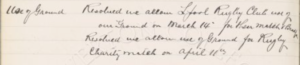 Use of Ground Resolved we allow L'pool Rugby Club use of
our Ground on March 14th for
Resolved we allow use of Ground for Rugby
Charity match on April 11th